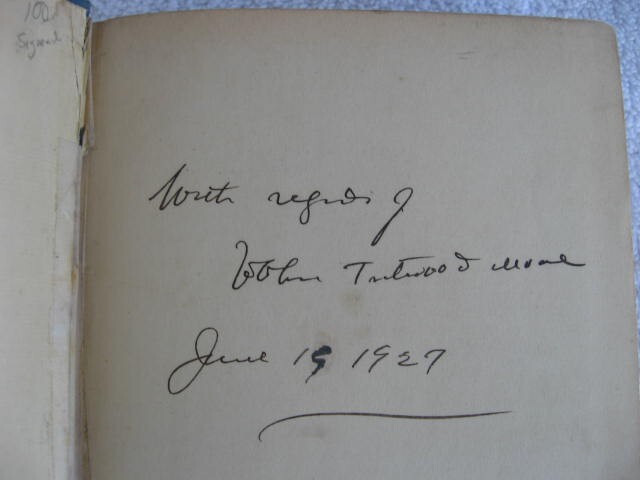 Signed
With regards of
John Trotwood Moore
June 19 1927